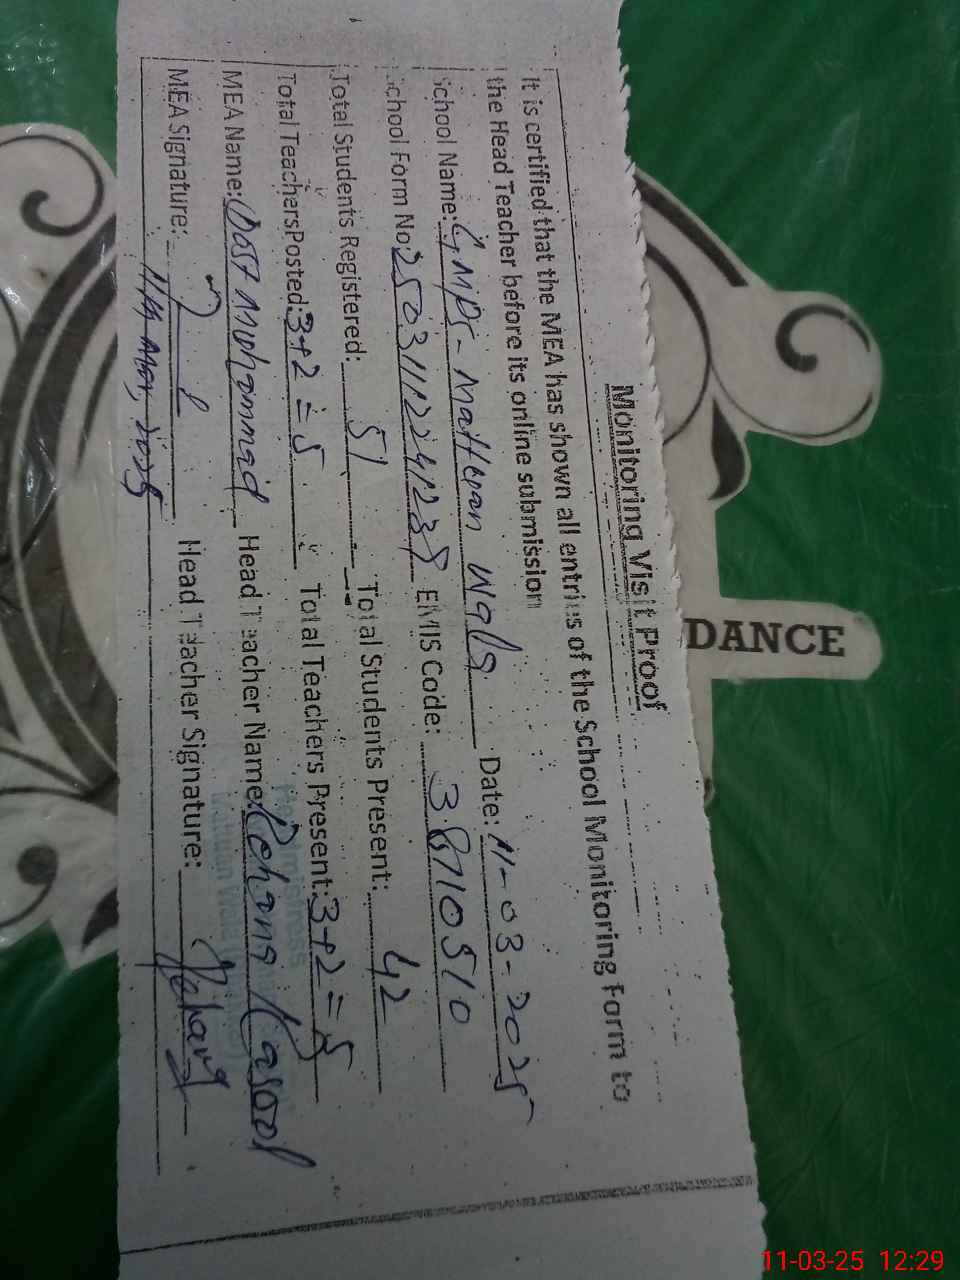 Monitoring Visit Proof
It is certified that the MEA has shown all entries of the School Monitoring Form to
the Head Teacher before its online submission
School Name: GMPS - Mattepan Wala Date: 11-03-2025
School Form No: 25031112241238 EMIS Code: 38710510
Total Students Registered: 51 Total Students Present: 42
Total Teachers Posted: 3+2=5 Total Teachers Present: 3+2=5
MEA Name: Dost Mohammad Head Teacher Name: Rehana Kasool
MEA Signature: Head Teacher Signature: Rehana
11th Mar, 2025
DANCE
11-03-25 12:29